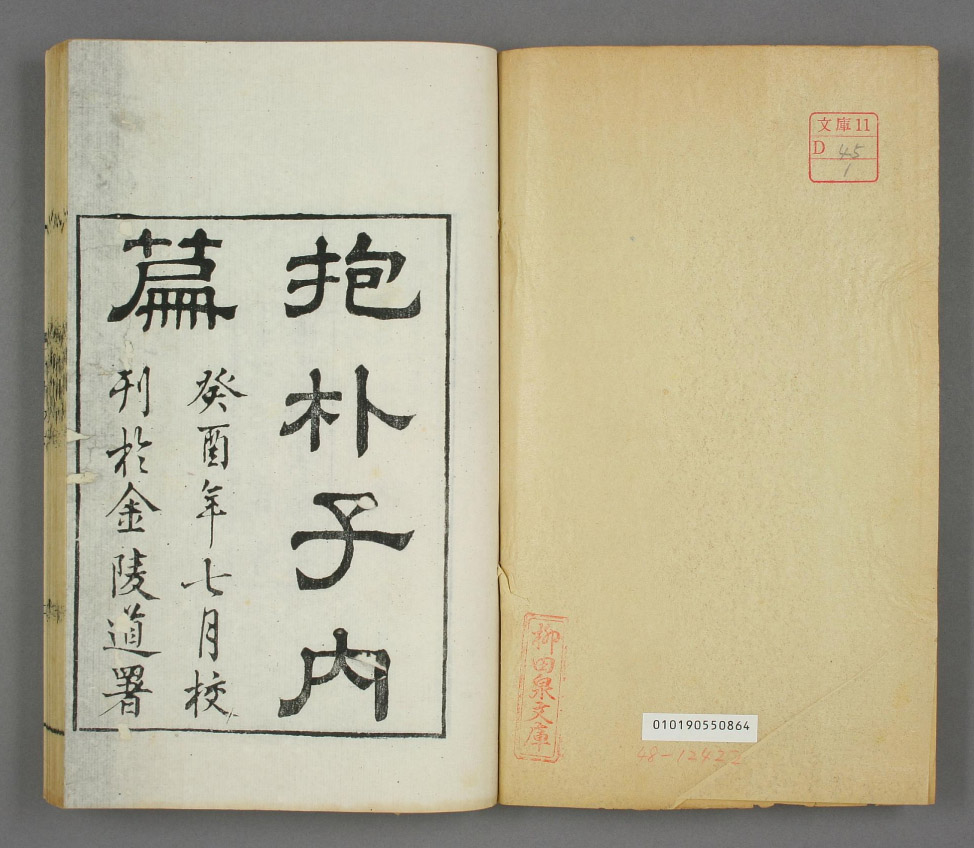 文庫11
D 45
1
柳田泉文庫
010190550864
48-12422
抱朴子內
篇
癸酉年七月校
刊於金陵道署